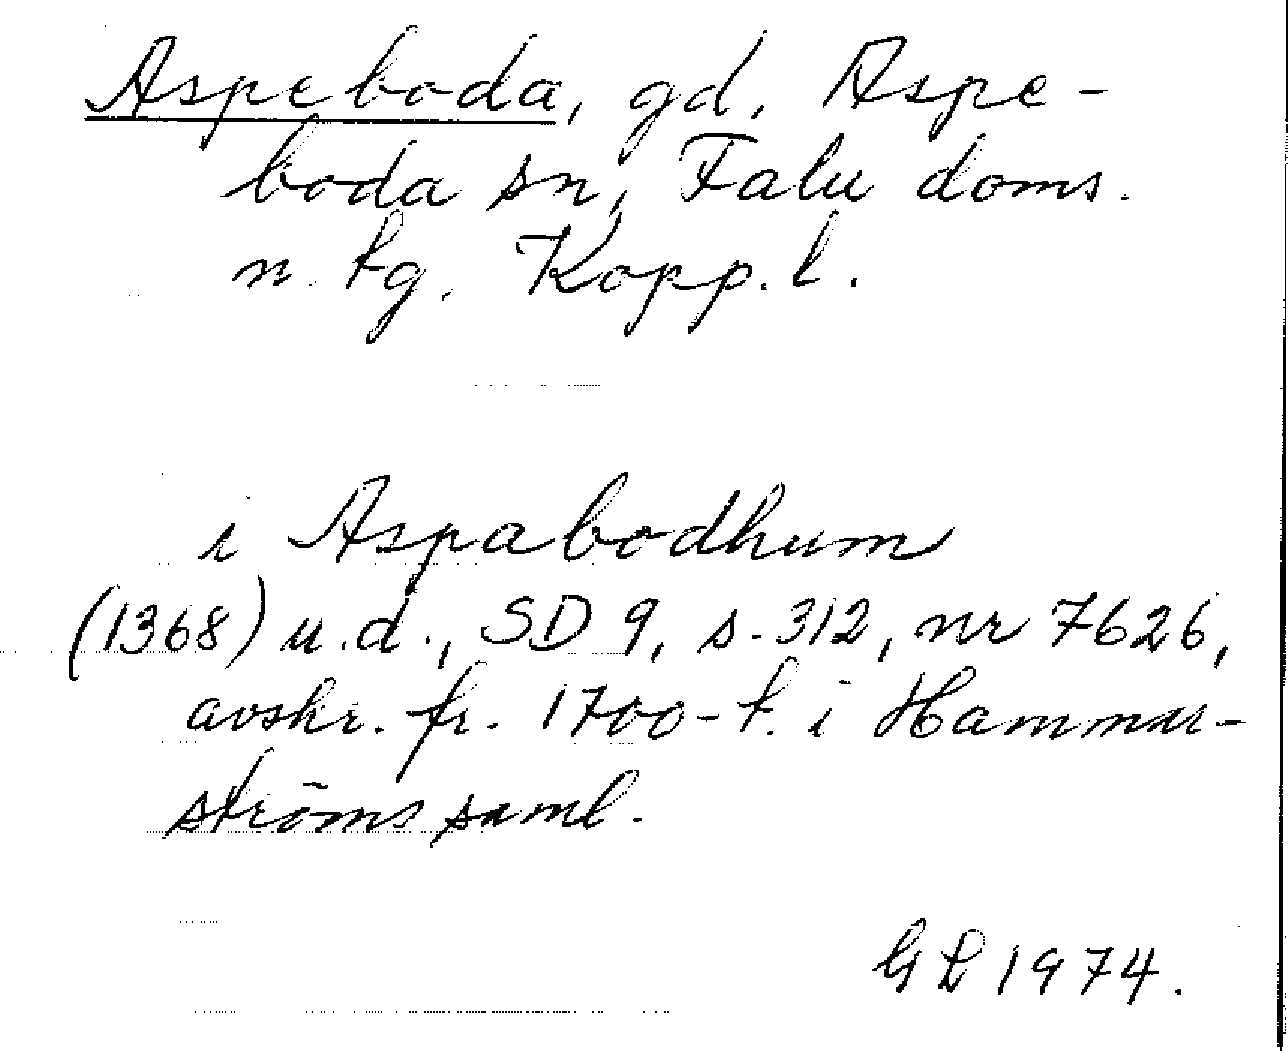 Aspeboda, gd, Aspe-
boda sn, Falu doms.
n. tg. Kopp. l.
i Aspabodhum
(1368) u.d., SD 9, s. 312, nr 7626,
avskr. fr. 1700-t. i Hammar-
ströms saml.
GL 1974.